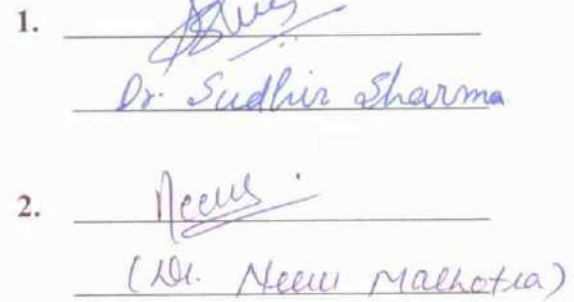 1.
Dr. Sudhir Sharma
2. Neeru
(Dr. Neeru Malhotra)